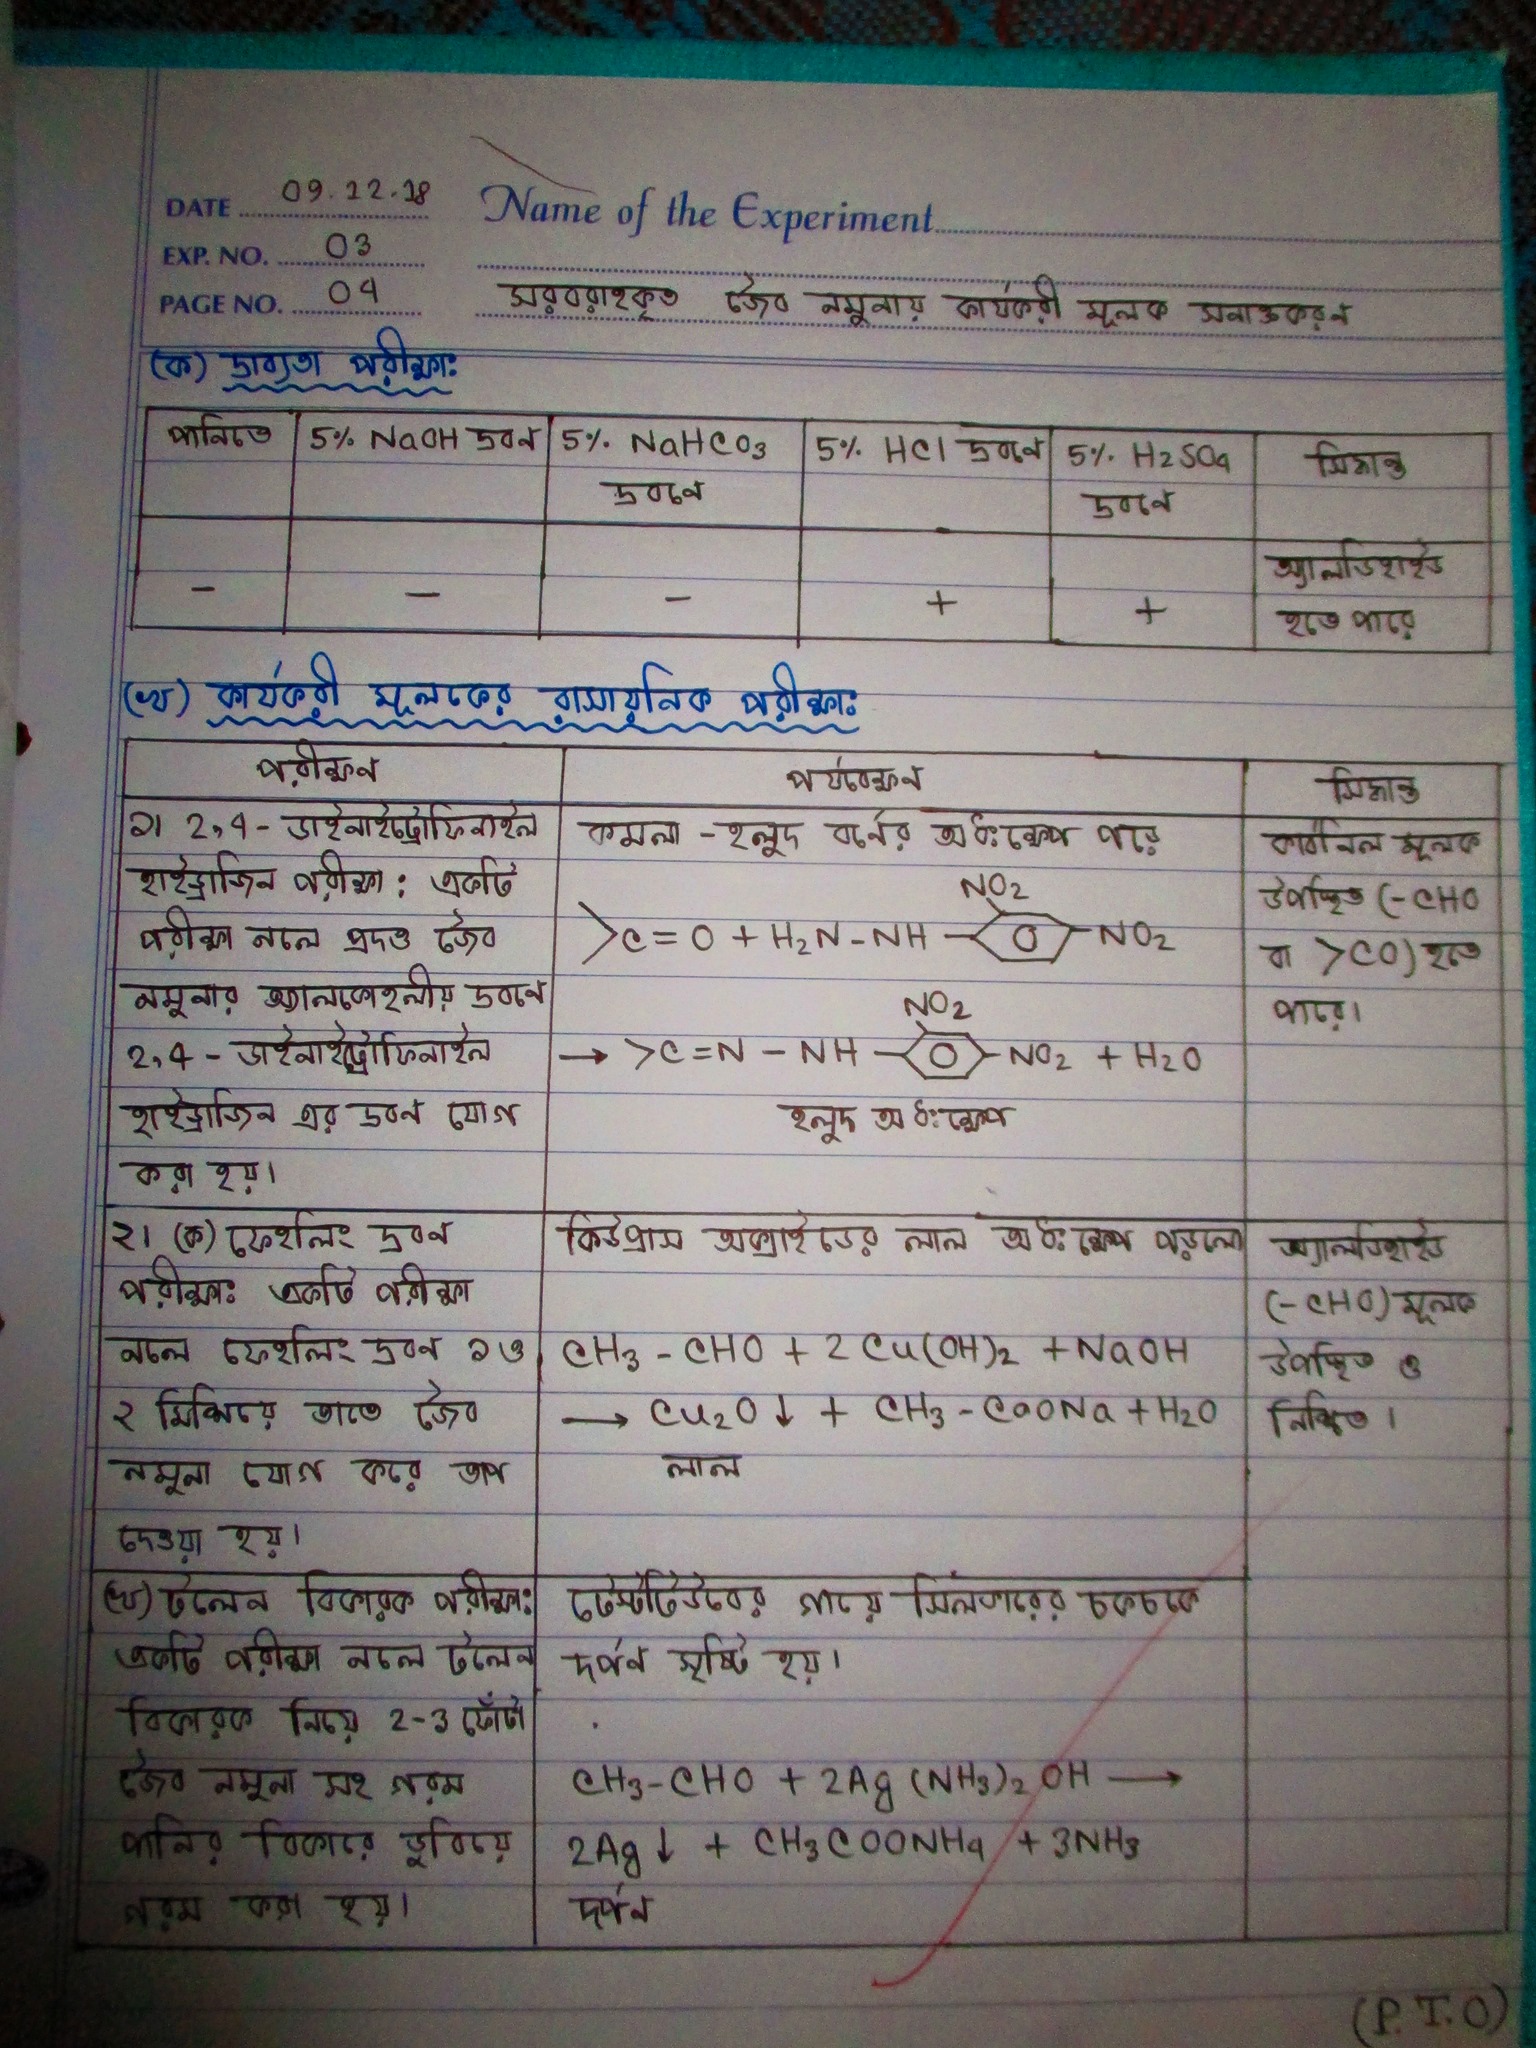 DATE 09.12.18
Name of the Experiment
EXP. NO. 03
PAGE NO. 04
সরবরাহকৃত জৈব নমুনায় কার্যকরী মূলক সনাক্তকরন
(ক) দ্রাব্যতা পরীক্ষাঃ
পানিতে | 5% NaOH দ্রবন | 5% NaHCO3 দ্রবনে | 5% HCl দ্রবনে | 5% H2SO4 দ্রবনে | সিদ্ধান্ত
− | − | − | + | + | অ্যালডিহাইড হতে পারে
(খ) কার্যকরী মূলকের রাসায়নিক পরীক্ষাঃ
পরীক্ষন | পর্যবেক্ষন | সিদ্ধান্ত
১। 2,4- ডাইনাইট্রোফিনাইল
হাইড্রাজিন পরীক্ষা: একটি
পরীক্ষা নলে প্রদত্ত জৈব
নমুনার অ্যালকোহলীয় দ্রবনে
2,4 - ডাইনাইট্রোফিনাইল
হাইড্রাজিন এর দ্রবন যোগ
করা হয়।
কমলা -হলুদ বর্নের অধঃক্ষেপ পরে
NO2
>C=O + H2N-NH - - NO2
NO2
→ >C=N - NH - - NO2 + H2O
হলুদ অধঃক্ষেপ
কার্বনিল মূলক
উপস্থিত (-CHO
বা >CO) হতে
পারে।
২। (ক) ফেহলিং দ্রবন
পরীক্ষাঃ একটি পরীক্ষা
নলে ফেহলিং দ্রবন ১ ও
২ মিশিয়ে তাতে জৈব
নমুনা যোগ করে তাপ
দেওয়া হয়।
কিউপ্রাস অক্সাইডের লাল অধঃক্ষেপ পড়লো
CH3-CHO + 2Cu(OH)2 + NaOH
→ Cu2O↓ + CH3-COONa + H2O
লাল
অ্যালডিহাইড
(-CHO) মূলক
উপস্থিত ও
নিশ্চিত।
(খ) টলেন বিকারক পরীক্ষাঃ
একটি পরীক্ষা নলে টলেন
বিকারক নিয়ে 2-3 ফোঁটা
জৈব নমুনা সহ গরম
পানির বিকারে ডুবিয়ে
গরম করা হয়।
টেস্টটিউবের গায়ে সিলভারের চকচকে
দর্পন সৃষ্টি হয়।
CH3-CHO + 2Ag(NH3)2OH →
2Ag↓ + CH3COONH4 + 3NH3
দর্পন
(P.T.O)